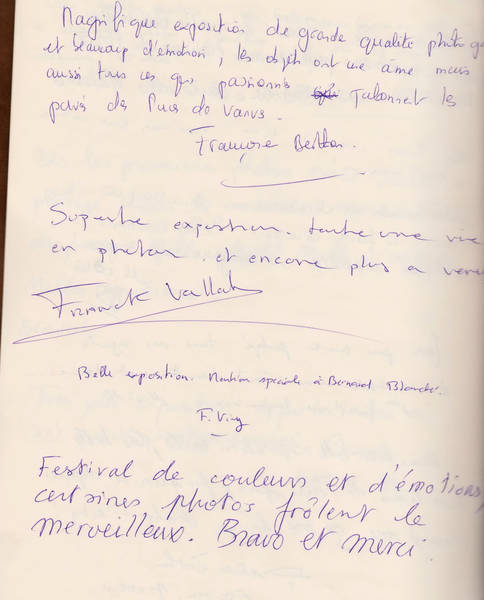 Magnifique exposition de grande qualité photo
et beaucoup d'émotion, les objets ont une âme mais
aussi tous ces gens passionnés qui jalonnent les
pavés des Puces de Vanves.
Françoise
Superbe exposition. toute une vie
en photos. et encore plus a
Franck
Belle exposition. Mention spéciale à Bernard
F.
Festival de couleurs et d'émotions,
certaines photos frôlent le
merveilleux. Bravo et merci.